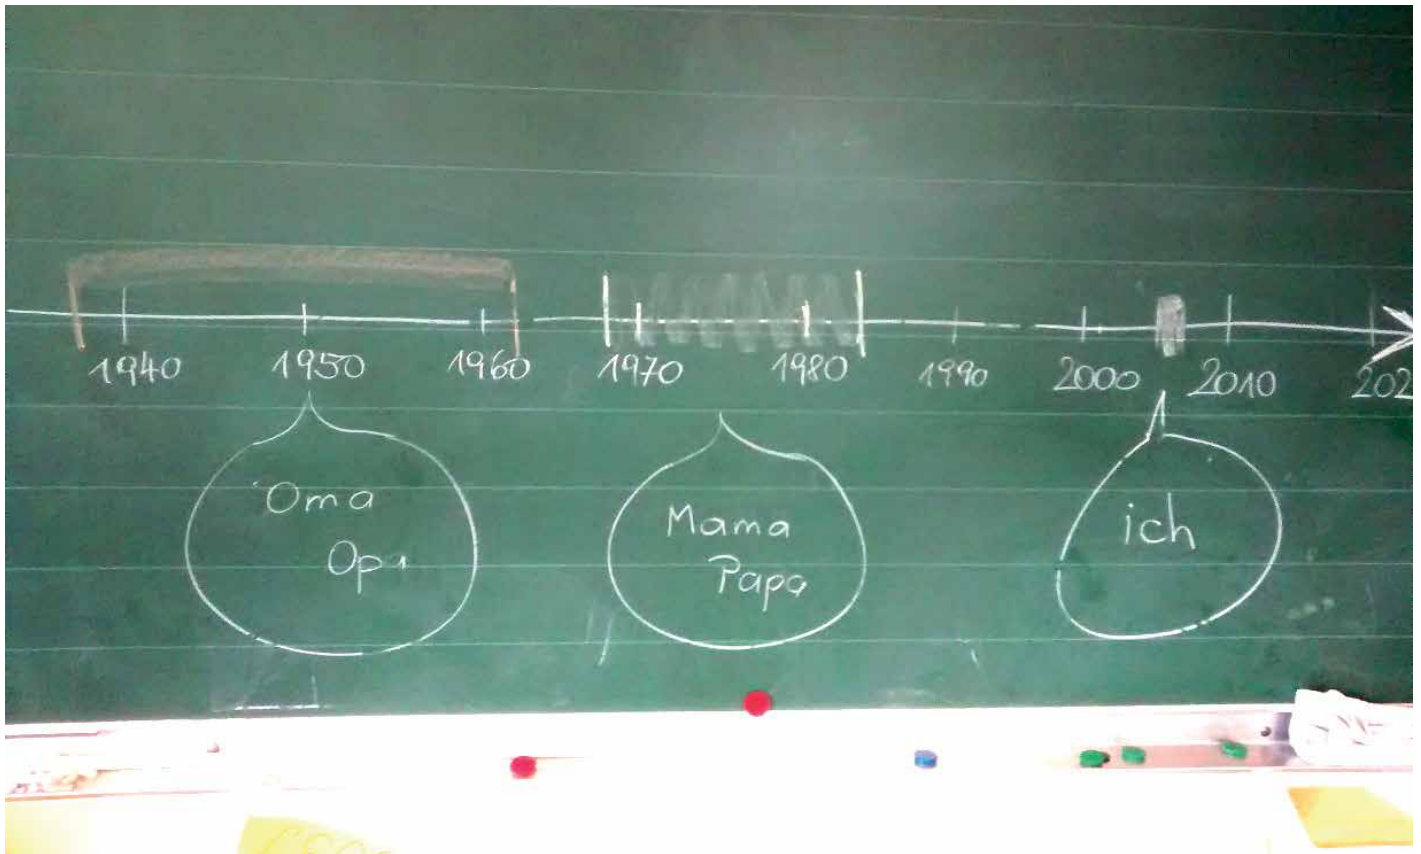 1940 1950 1960 1970 1980 1990 2000 2010 202
Oma
Opa
Mama
Papa
ich